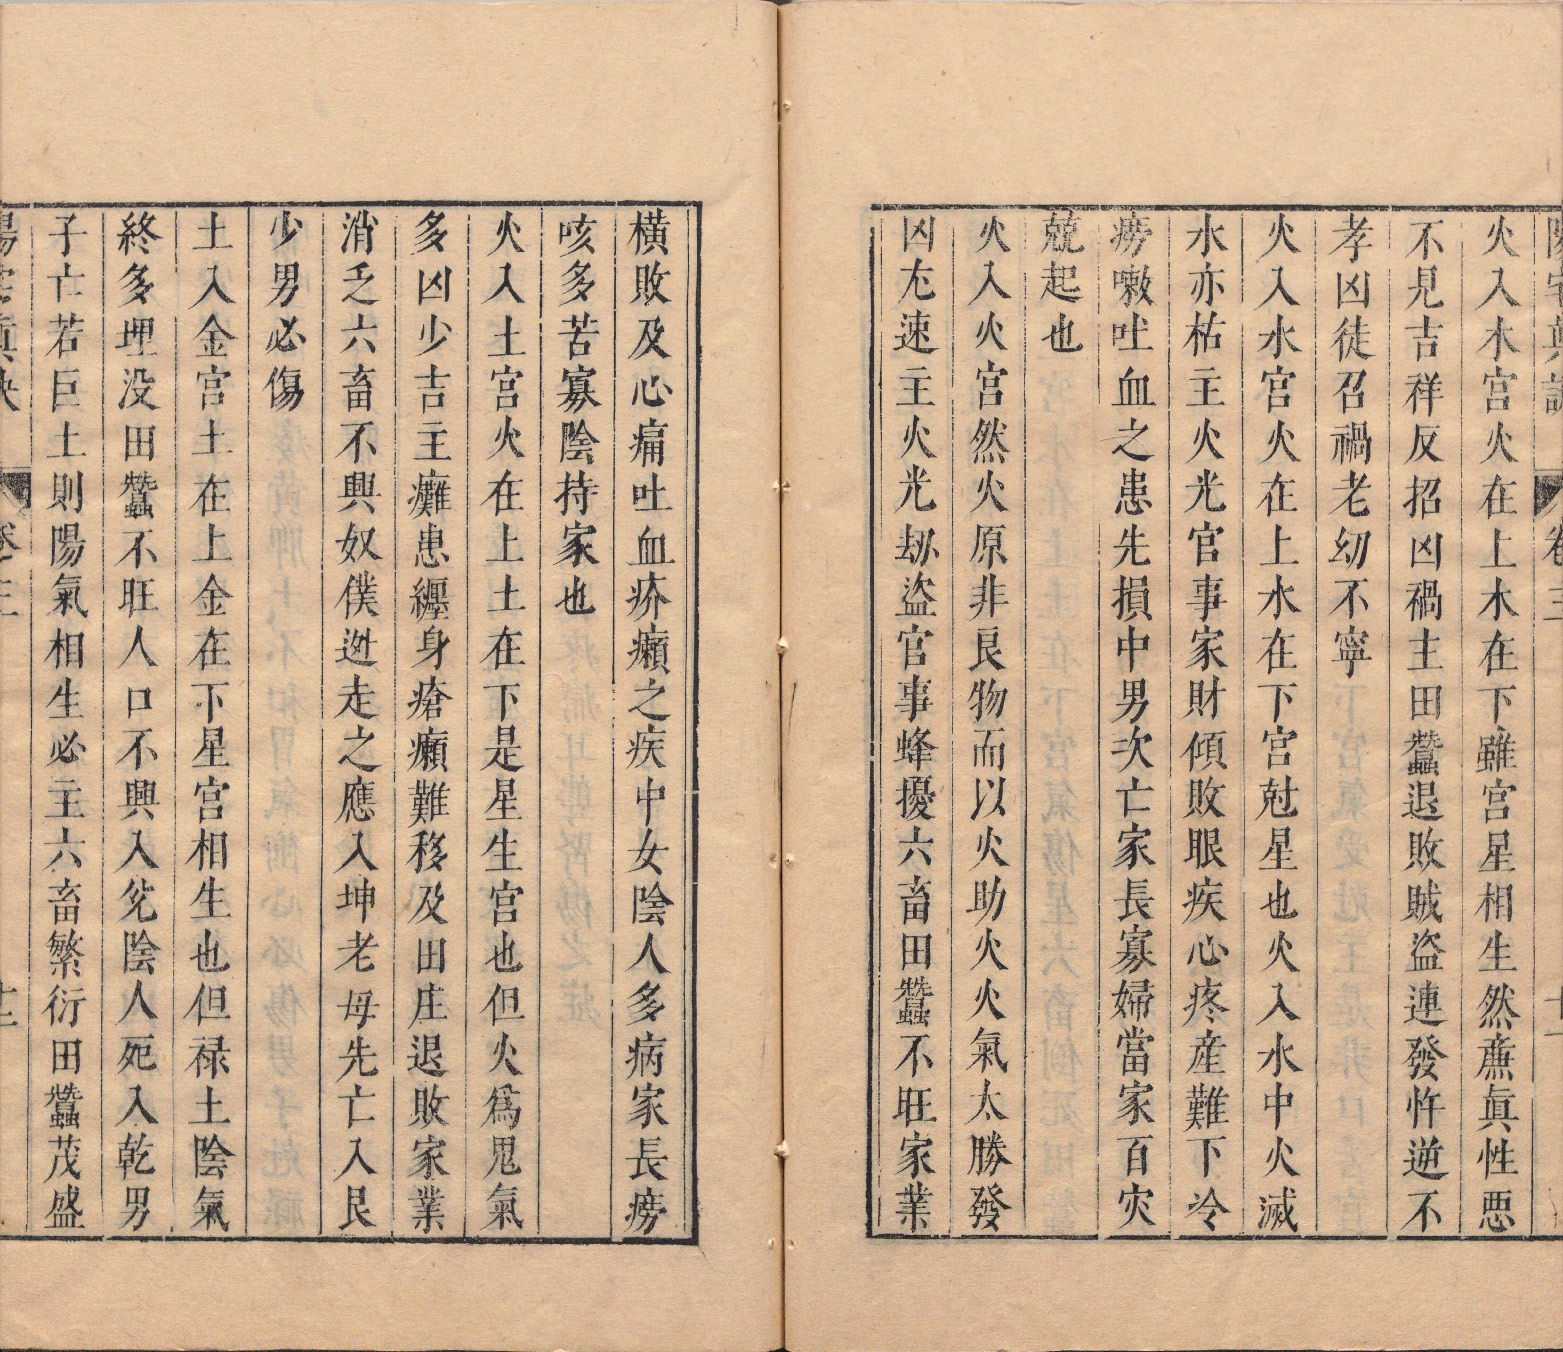 陽宅眞訣 卷三 十二
火入木宮火在上木在下雖宮星相生然燕眞性悪
不見吉祥反招凶禍主田蠶退敗賊盗連發忤逆不
孝凶徒召禍老幼不寧
火入水宮火在上水在下宮尅星也火入水中火滅
水亦枯主火光官事家財傾敗眼疾心疼産難下冷
癆嗽吐血之患先損中男次亡家長寡婦當家百灾
兢起也
火入火宮然火原非良物而以火助火火氣太勝發
凶尤速主火光刼盗官事蜂擾六畜田蠶不旺家業
橫敗及心痛吐血疥癩之疾中女陰人多病家長癆
咳多苦寡陰持家也
火入土宮火在上土在下是星生宮也但火爲鬼氣
多凶少吉主癱患纒身瘡癩難移及田庄退敗家業
消乏六畜不興奴僕迯走之應入坤老母先亡入艮
少男必傷
土入金宮土在上金在下星宮相生也但禄土陰氣
終多埋没田蠶不旺人口不興入兊陰人死入乾男
子亡若巨土則陽氣相生必主六畜繁衍田蠶茂盛
陽宅眞訣 卷之三 十三